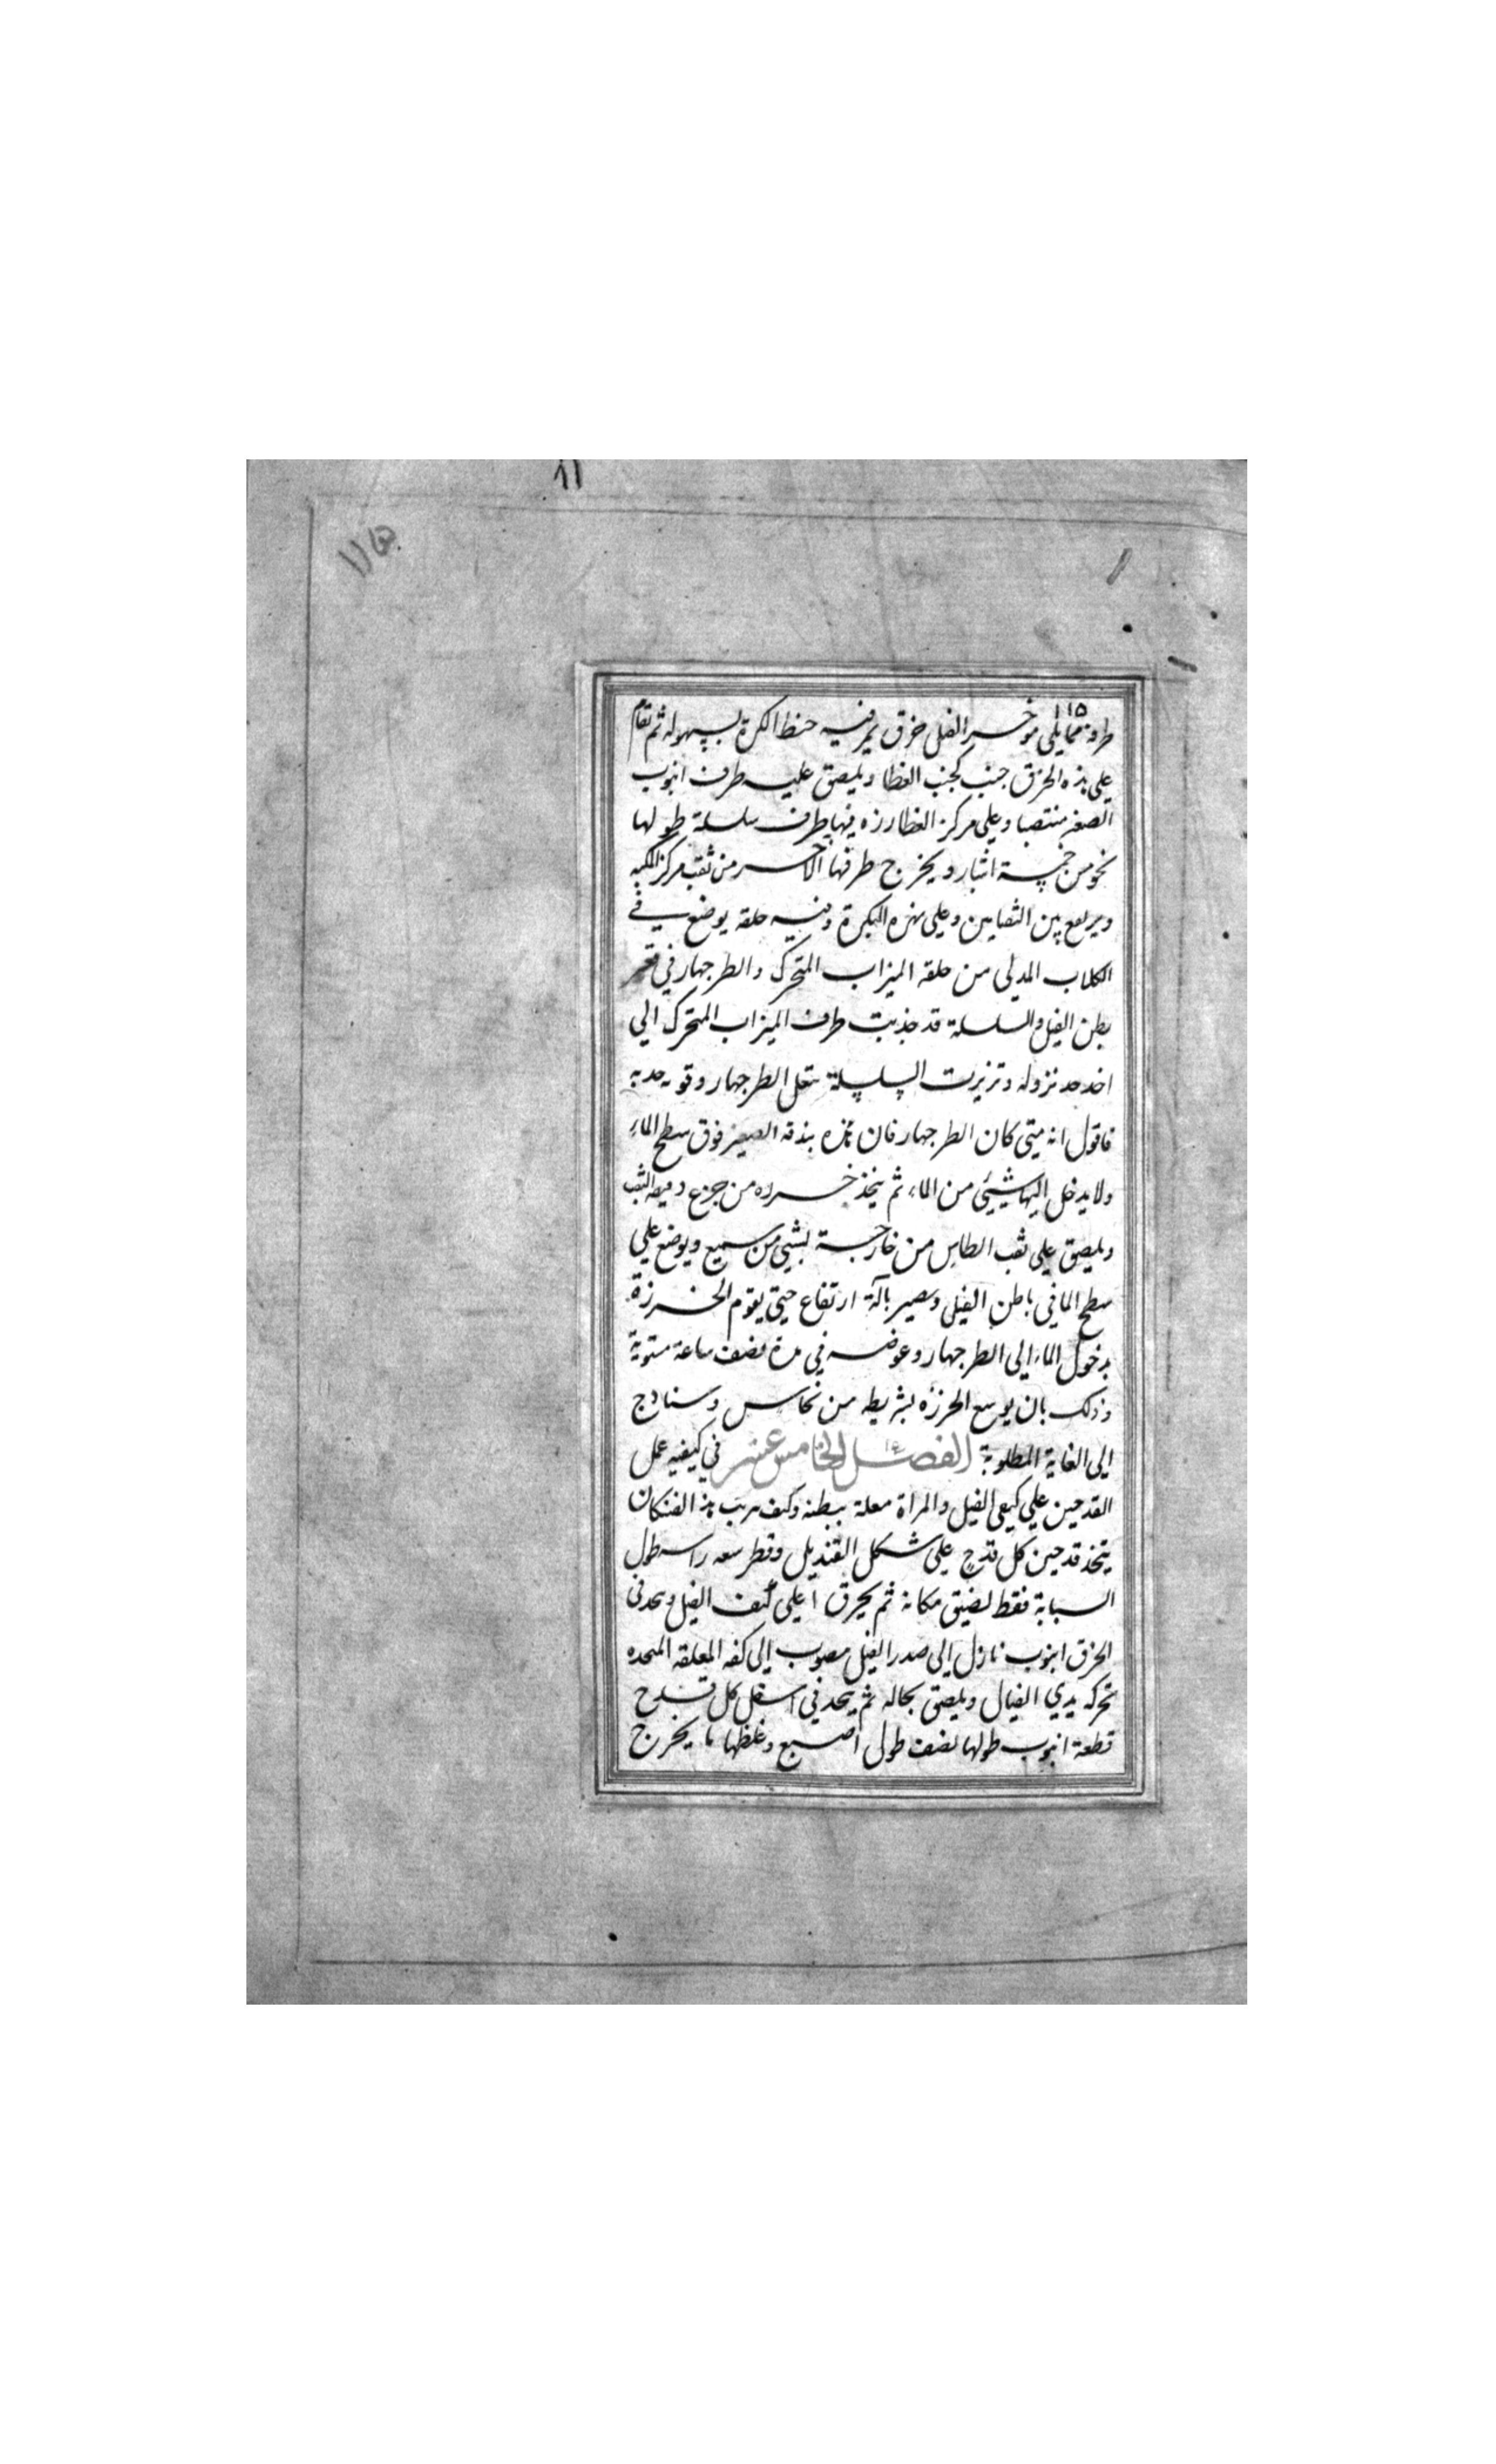 ١١٥
طرفه مما يلي موخر الفيل خرق يمر فيه حنظ الكرة بسهوله ثم تقام
علي هذه الخرق جنب كجنب الغطا ويلصق عليه طرف انبوب
الصغير منتصبا وعلي مركز الغطا رزه فيها طرف سلسلة طولها
نحو من خمسة اشبار ويخرج طرفها الاخر من ثقب مركز الكبه
ويرتفع بين الثعابين وعلي بكرة وفيه حلقه يوضع في
الكلاب المدلي من حلقه الميزاب المتحرك والطرجهار في قعر
بطن الفيل والسلسلة قد جذبت طرف الميزاب المتحرك الي
اخد حد نزوله وتزيرت السلسلة بثقل الطرجهار وقوه جذبه
فاقول انه متي كان الطرجهار فان بندقه الصغير فوق سطح الماء
ولا يدخل اليها شيئي من الماء ثم يتخذ خرزه من جزع دقيقه الثقب
ويلصق علي ثقب الطاس من خارجة بشيي من سميع ويوضع علي
سطح الما في باطن الفيل ويصير بآلة ارتفاع حتي يقوم الخرزة
بدخول الماء الي الطرجهار وغوصه في مدة نصف ساعة مستوية
وذلك بان يوسع الخرزه بشريطه من نحاس وسنادج
الي الغاية المطلوبة الفصل الخامس عشر في كيفيه عمل
القدحين علي كتفي الفيل والمراة معلة ببطنه وكيف مرتب هذا الفنكان
يتخذ قدحين كل قدح علي شكل القنديل وقطر سعه راسه طول
السبابة فقط لضيق مكانه ثم يخرق اعلي كتف الفيل ويتخذ في
الخرق انبوب نازل الي صدر الفيل مصبوب الي كفه المعلقه المتحده
تحركه يدي الفيال ويلصق بحاله ثم يتخذ في اسفل كل قدح
قطعة انبوب طولها نصف طول اصبع وغلظها ما يخرج